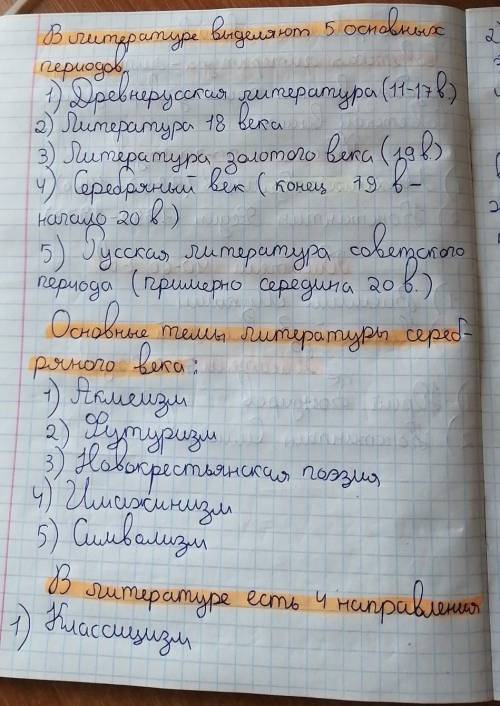 В литературе выделяют 5 основных
периодов
1) Древнерусская литература (11-17в.)
2) Литература 18 века
3) Литература золотого века (19в.)
4) Серебряный век ( конец 19 в-
начало 20 в.)
5) Русская литература советского
периода (примерно середина 20 в.)
Основные темы литературы сереб-
ряного века:
1) Акмеизм
2) Футуризм
3) Новокрестьянская поэзия
4) Имажинизм
5) Символизм
В литературе есть 4 направления
1) Классицизм